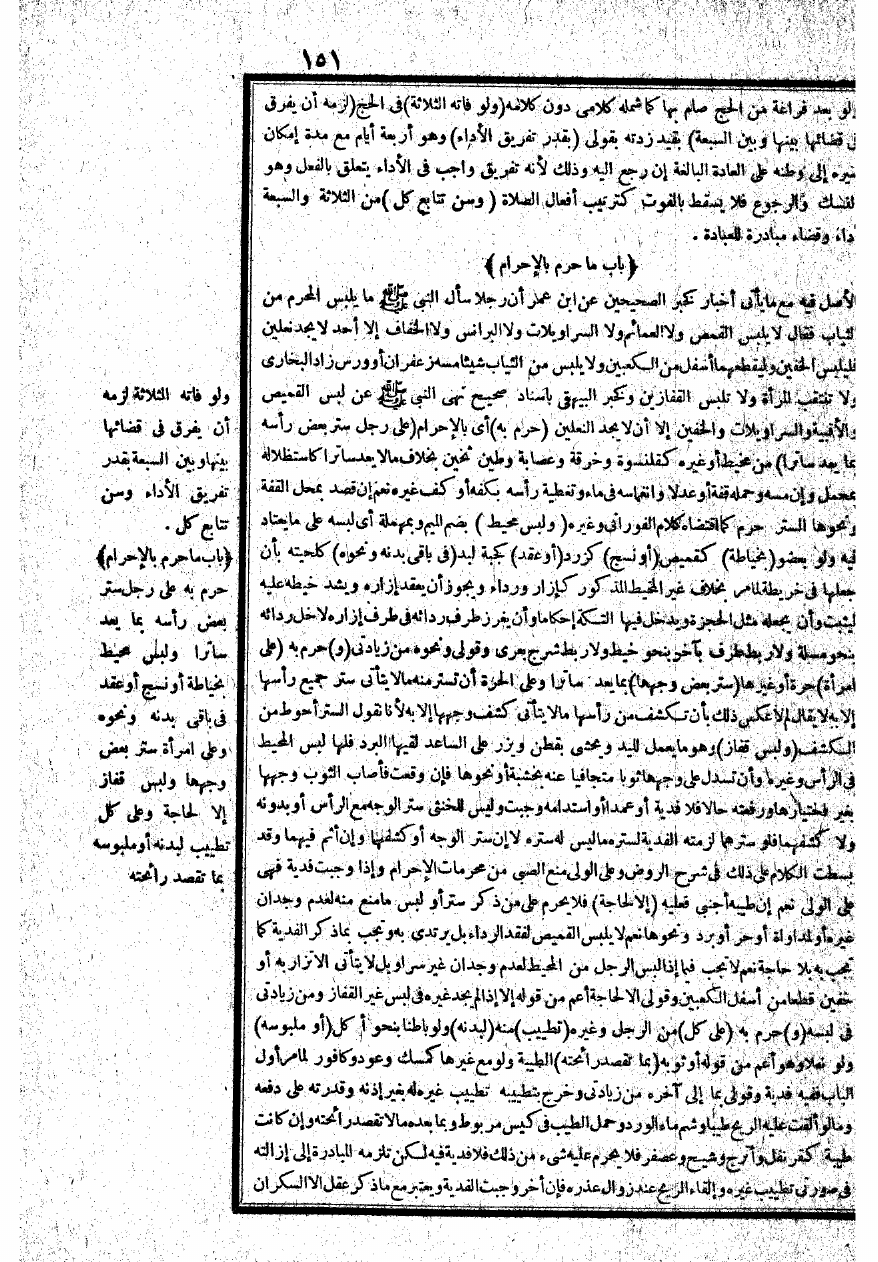 ١٥١
ولو بعد فراغة من الحج صام بها كما شمله كلامى دون كلامه (ولو فاته الثلاثة) فى الحج (لزمه أن يفرق
فى قضائها بينها وبين السبعة) بقيد زدته بقولى (بقدر تفريق الأداء) وهو أربعة أيام مع مدة إمكان
سيره إلى وطنه على العادة البالغة إن رجع اليه وذلك لأنه تفريق واجب فى الأداء يتعلق بالفعل وهو
النسك والرجوع فلا يسقط بالفوت كترتيب أفعال الصلاة (وسن تتابع كل) من الثلاثة والسبعة
أداء وقضاء مبادرة للعبادة .
﴿باب ما حرم بالإحرام﴾
الأصل فيه مع ما يأتى أخبار كخبر الصحيحين عن ابن عمر أن رجلا سأل النبى ﷺ ما يلبس المحرم من
الثياب فقال لا يلبس القمص ولا العمائم ولا السراويلات ولا البرانس ولا الخفاف إلا أحد لا يجد نعلين
فليلبس الخفين وليقطعهما أسفل من الكعبين ولا يلبس من الثياب شيئا مسه زعفران أو ورس زاد البخارى
ولا تنتقب المرأة ولا تلبس القفازين وكخبر البيهقى باسناد صحيح نهى النبى ﷺ عن لبس القميص
والأقبية والسراويلات والخفين إلا أن لا يجد النعلين (حرم به) أى بالإحرام (على رجل ستر بعض رأسه
بما يعد ساترا) من مخيط أو غيره كقلنسوة وخرقة وعصابة وطين ثخين بخلاف ما لا يعد ساترا كاستظلاله
بمحمل وإن مسه وحمله قفة أو عدلا وانغماسه فى ماء وتغطية رأسه بكفه أو كف غيره نعم إن قصد بحمل القفة
ونحوها الستر حرم كما اقتضاه كلام الفورانى وغيره (ولبس محيط) بضم الميم وبمهملة أى لبسه على ما يعتاد
فيه ولو بعضو (بخياطة) كقميص (أو نسج) كزرد (أو عقد) كجبة لبد (فى باقى بدنه ونحوه) كلحيته بأن
جعلها فى خريطة لما مر بخلاف غير المحيط المذكور كإزار ورداء ويجوز أن يعقد إزاره ويشد خيطه عليه
ليثبت وأن يجعله مثل الحجزة ويدخل فيها التكة إحكاما وأن يغرز طرف ردائه فى طرف إزاره لا خل ردائه
بنحو مسلة ولا ربط طرف بآخر بنحو خيط ولا ربط شرج بعرى وقولى ونحوه من زيادتى (و) حرم به (على
امرأة) حرة أو غيرها (ستر بعض وجهها) بما يعد ساترا وعلى الحرة أن تستر منه ما لا يتأتى ستر جميع رأسها
إلا به لا يقال لم لا عكس ذلك بأن تكشف من رأسها ما لا يتأتى كشف وجهها إلا به لأنا نقول الستر أحوط من
الكشف (ولبس قفاز) وهو ما يعمل لليد ويحشى بقطن ويزر على الساعد لقيها البرد فلها لبس المخيط
فى الرأس وغيره وأن تسدل على وجهها ثوبا متجافيا عنه بخشبة أو نحوها فإن وقعت فأصاب الثوب وجهها
بغير اختيارها ورفعته حالا فلا فدية أو عمدا أو استدامه وجبت وليس للخنثى ستر الوجه مع الرأس أو بدونه
ولا كشفهما فلو سترهما لزمته الفدية لستره ما ليس له ستره لا إن ستر الوجه أو كشفهما وإن أثم فيهما وقد
بسطت الكلام على ذلك فى شرح الروض وعلى الولى منع الصبى من محرمات الإحرام وإذا وجبت فدية فهى
على الولى نعم إن طيبه أجنبى فعليه (إلا لحاجة) فلا يحرم على من ذكر ستر أو لبس ما منع منه لعدم وجدان
غيره أو لمداواة أو حر أو برد ونحوها نعم لا يلبس القميص لفقد الرداء بل يرتدى به وتجب بما ذكر الفدية كما
تجب به بلا حاجة نعم لا تجب فيما إذا لبس الرجل من المخيط لعدم وجدان غير سراويل لا يتأتى الاتزار به أو
خفين قطعا من أسفل الكعبين وقولى الا لحاجة أعم من قوله إلا إذا لم يجد غيره فى لبس غير القفاز ومن زيادتى
فى لبسه (و) حرم به (على كل) من الرجل وغيره (تطييب) منه (لبدنه) ولو باطنا بنحو أكل (أو ملبوسه)
ولو نعلا وهو أعم من قوله أو ثوبه (بما تقصد رائحته) الطيبة ولو مع غيرها كمسك وعود وكافور لما مر أول
الباب ففيه فدية وقولى بما إلى آخره من زيادتى وخرج بتطييبه تطييب غيره له بغير إذنه وقدرته على دفعه
وما لو ألقت عليه الريح طيبا وشم ماء الورد وحمل الطيب فى كيس مربوط وبما بعده ما لا تقصد رائحته وإن كانت
طيبة كقرنفل وأترج وشيح وعصفر فلا يحرم عليه شىء من ذلك فلا فدية فيه لكن تلزمه المبادرة إلى إزالته
فى صورتى تطييب غيره وإلقاء الريح عند زوال عذره فإن أخر وجبت الفدية ويعتبر مع ما ذكر عقل الا السكران
ولو فاته الثلاثة لزمه
أن يفرق فى قضائها
بينها وبين السبعة بقدر
تفريق الأداء وسن
تتابع كل .
﴿باب ما حرم بالإحرام﴾
حرم به على رجل ستر
بعض رأسه بما يعد
ساترا ولبس محيط
بخياطة أو نسج أو عقد
فى باقى بدنه ونحوه
وعلى امرأة ستر بعض
وجهها ولبس قفاز
إلا لحاجة وعلى كل
تطييب لبدنه أو ملبوسه
بما تقصد رائحته